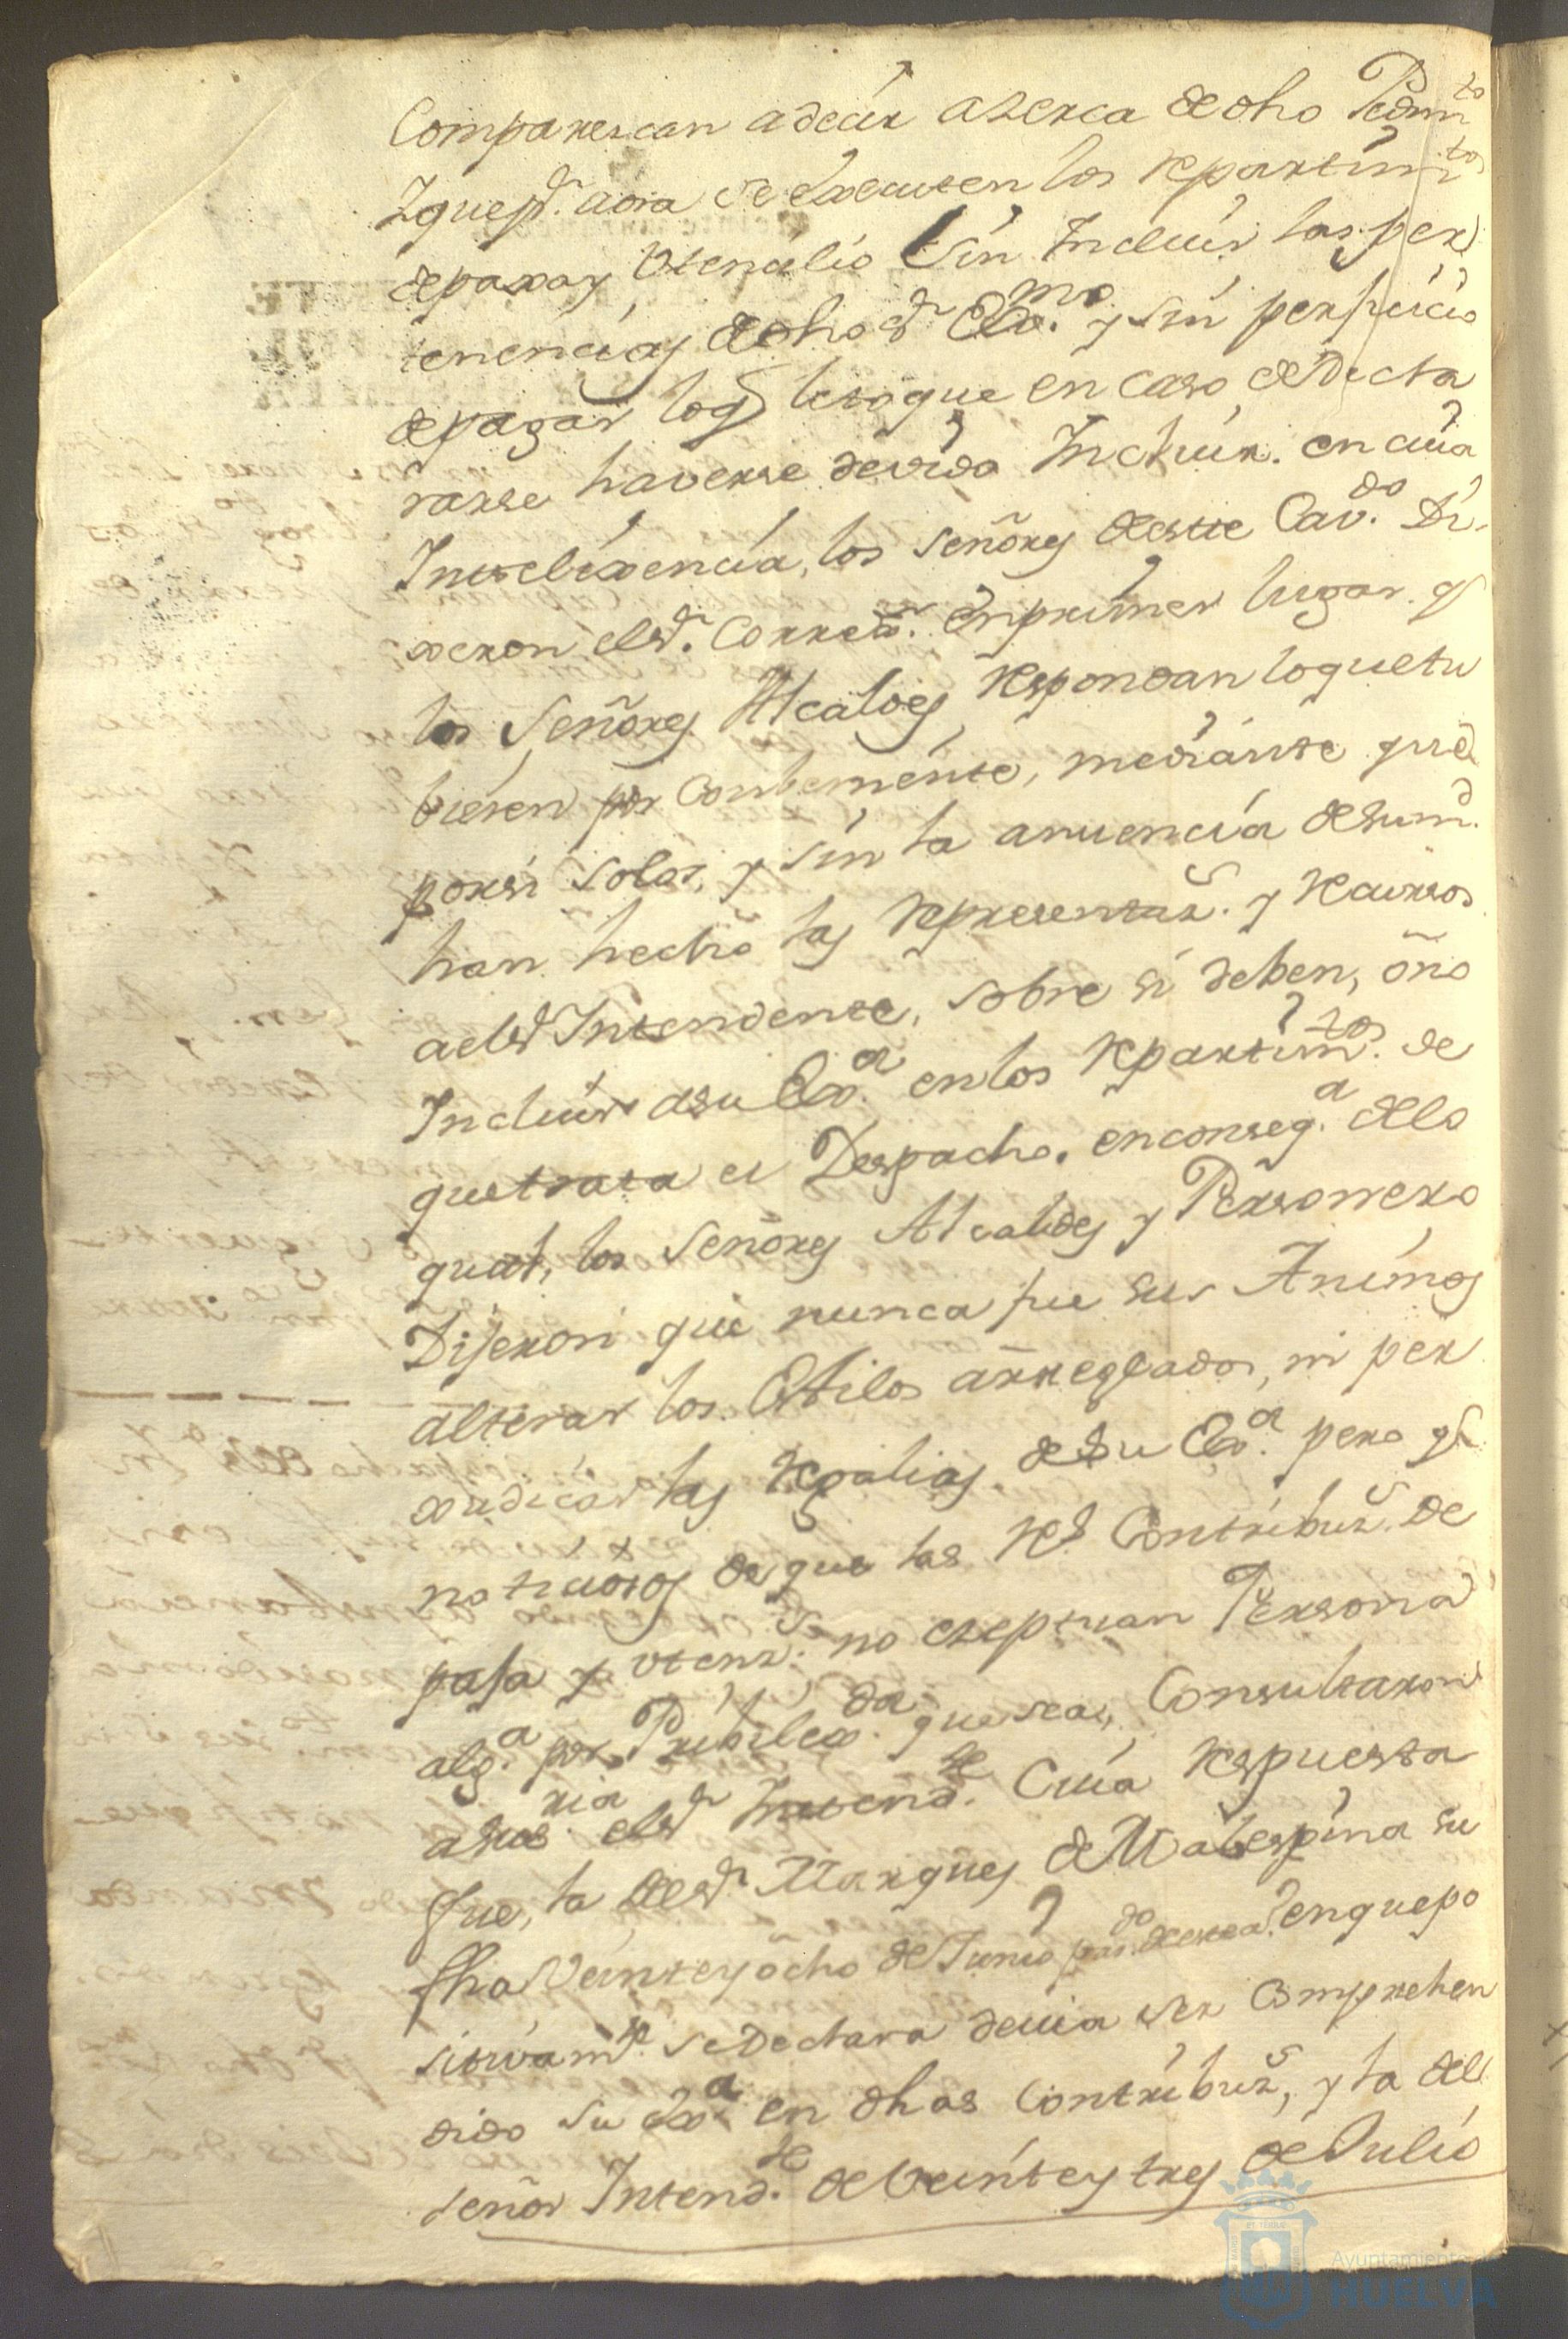 Comparescan a decir aserca de dho Pedimto
Y que pr. aora se executen los repartimtos
de paxa y Utencilio sin Incluir las per
tenencias de dho Sr Exmo. y sin perjuicio
de pagar los que en caso de Decla
rarse haverse devido Incluir. en cuia
Intelixencia, los señores de este Cavdo. Di-
xeron el Sr. Correxr. en primer lugar q
los Señores Alcaldes respondan lo que tu
bieren por combeniente, mediante que
por si solos, y sin la anuencia de su md.
han hecho las representazs. y recursos
a el Sr Intendente, sobre si deben, ó no
Incluir a su Exa. en los repartimtos. de
que trata el Despacho. en conseqa. de lo
qual, los Señores Alcaldes y Personero
Dijeron que nunca fue sus Animos
alterar los Estilos arreglados, ni per
xudicar las regalias de su Exa. pero q
noticiosos de que las Rs Contribuzs. de
paja y utenzs. no eseptuan Persona
alga. por Pribilexda. que sea, Consultaron
a dho el Sr Intende. Cuia respuesta
fue, la del Sr Marques de Malespina su
fha Veinte y ocho de Junio pasdo. de este a. en que po
sitivamte. se Declara devia ser Comprehen
dido su Exa. en dhas Contribuzs, y la del
señor Intende. de Veinte y tres de Julio
Ayuntamiento de
HUELVA